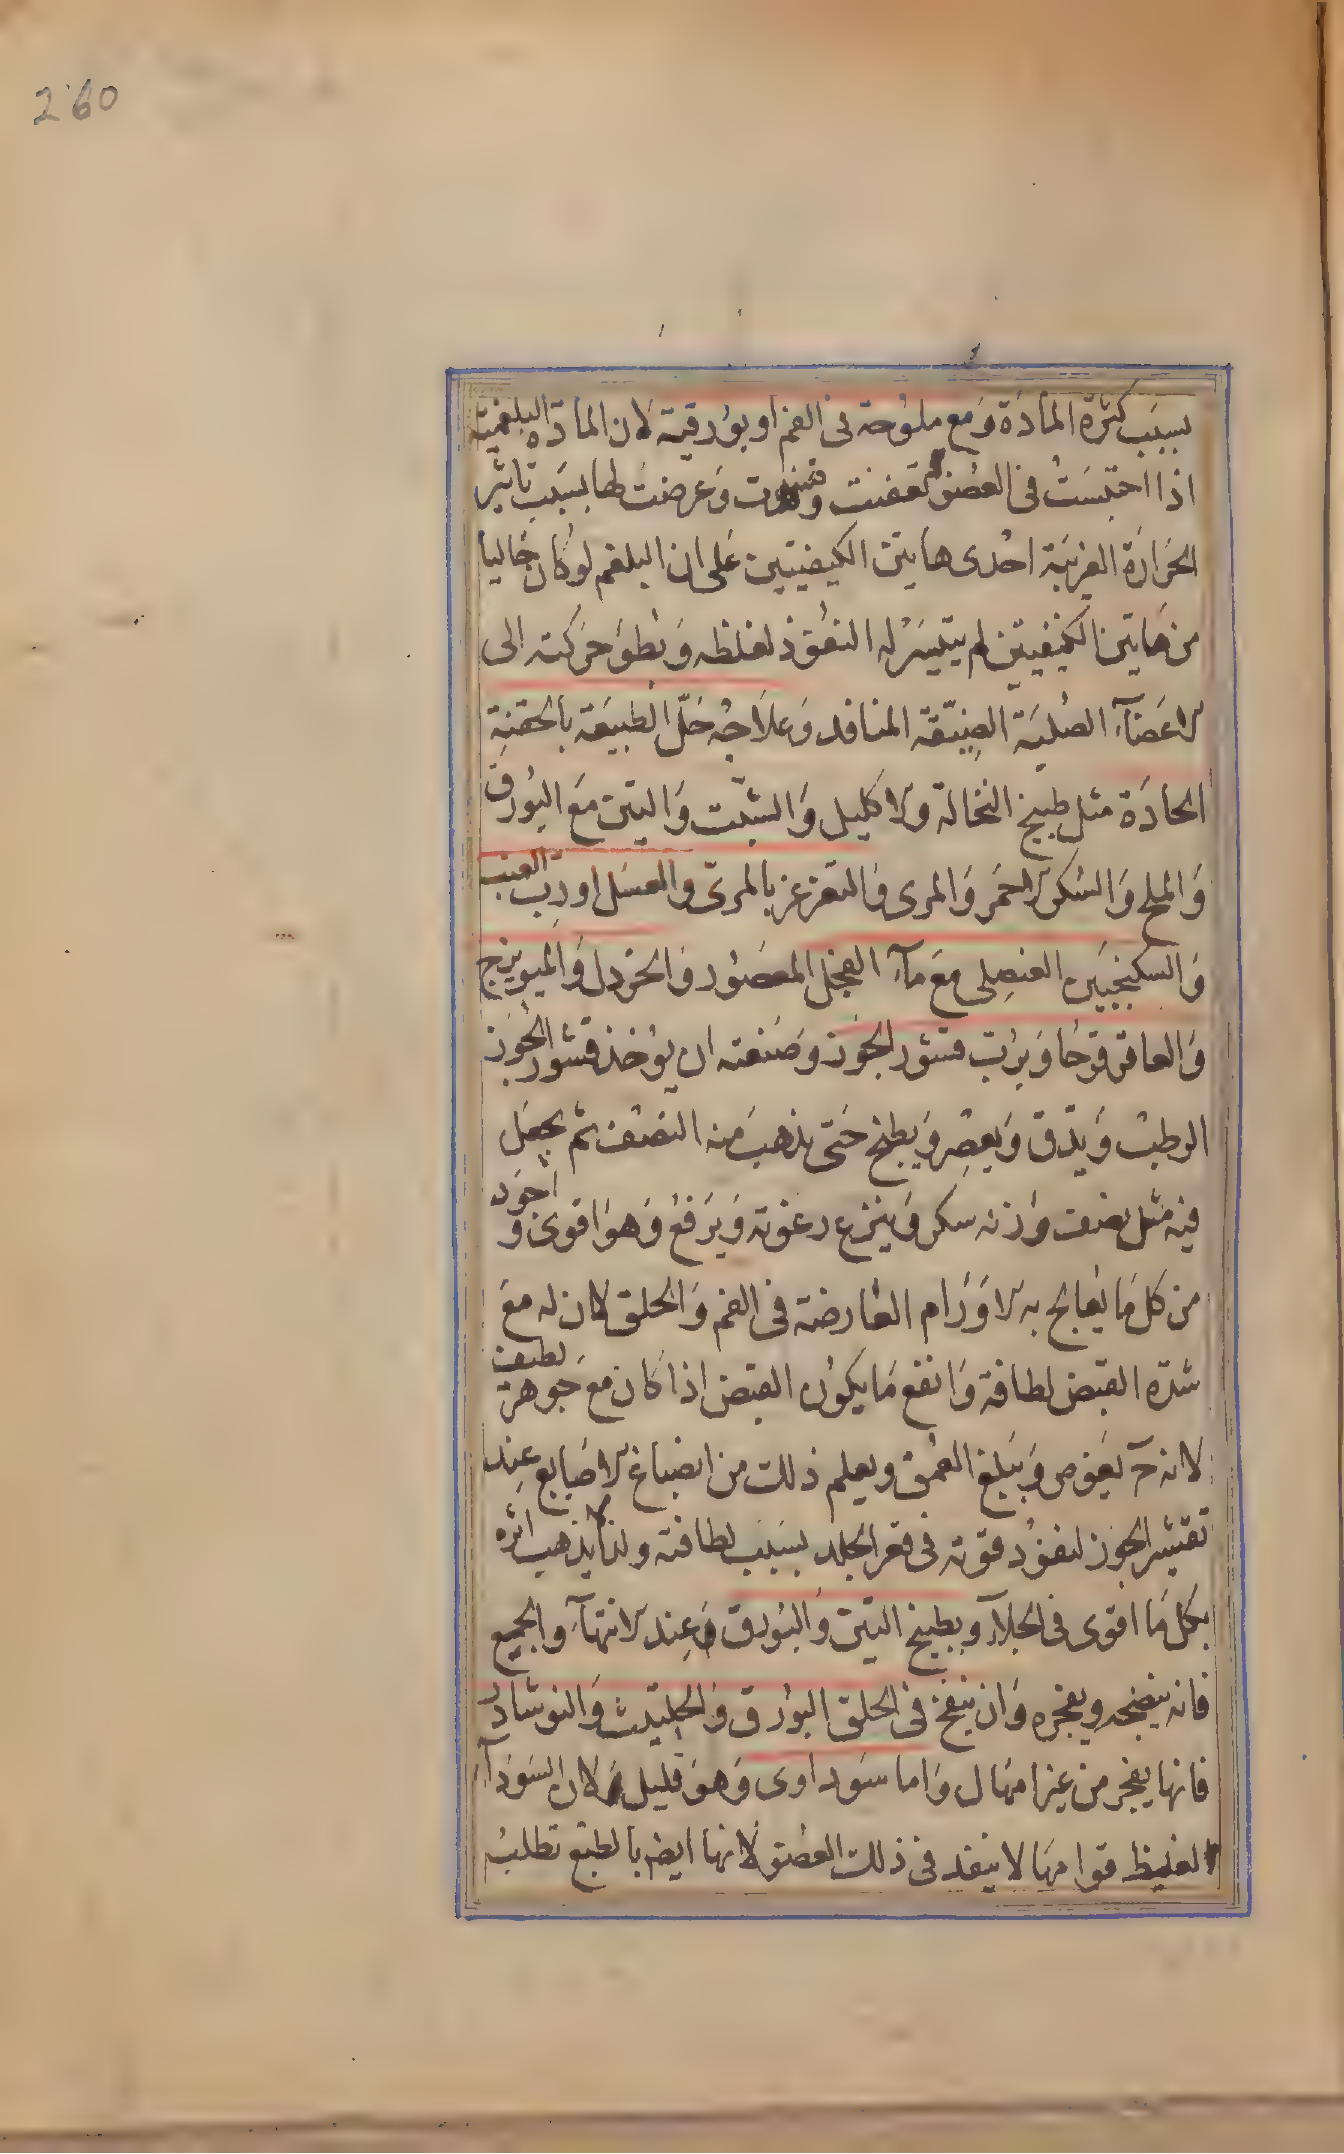 260
بسبب كثرة المادة ومع ملوحة فى الفم او بورقية لان المادة البلغمية
اذا احتبست فى العضو تعفنت وفسدت وعرضت لها بسبب تاثير
الحرارة الغريبة احدى هاتين الكيفيتين على ان البلغم لو كان خاليا
من هاتين الكيفيتين لم يتيسر له النفوذ لغلظه وبطوء حركته الى
الاعضآء الصلبة الضيقة المنافد وعلاجه حل الطبيعة بالحقنة
الحادة مثل طبيخ النخالة والاكليل والشبت والتين مع البورق
والملح والسكر الاحمر والمرى والتغرغر بالمرى والعسل او رب العنب
والسكنجبين العنصلى مع مآء الفجل المعصور والخردل والميويزج
والعاقرقرحا وبرب قشور الجوز وصنعته ان يوخذ قشور الجوز
الرطب ويدق ويعصر ويطبخ حتى يذهب منه النصف ثم يجعل
فيه مثل نصف وزنه سكر وينزع رغوته ويرفع وهو اقوى و اجود
من كل ما يعالج به الاورام العارضة فى الفم والحلق لان له مع
شدة القبض لطافة وانفع ما يكون القبض اذا كان مع جوهرة لطيف
لانه ح يغوص ويبلغ العمق ويعلم ذلك من انصباغ الاصابع عند
تقشير الجوز لنفوذ قوته فى قعر الجلد بسبب لطافته ولذا لا يذهب اثره
بكل ما اقوى فى الجلآء وبطبيخ التين والبورق وعند الانتهآء والجميع
فانه ينضجه ويفجره وان ينفخ فى الحلق البورق والحلتيت والنوشادر
فانها يفجر من غير امهال واما سوداوى وهو قليل لان السودآء
لغليظ قوامها لا ينفد فى ذلك العضو لانها ايضا بالطبع تطلب